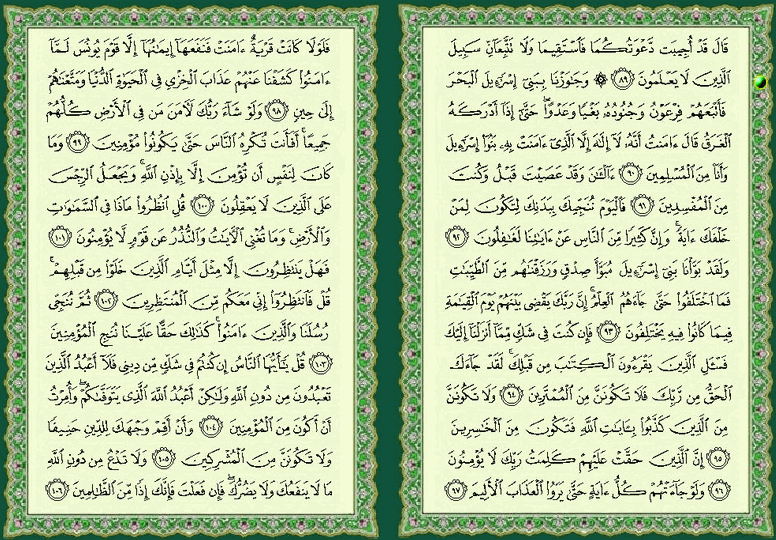 قَالَ قَدْ أُجِيبَت دَّعْوَتُكُمَا فَٱسْتَقِيمَا وَلَا تَتَّبِعَآنِّ سَبِيلَ
ٱلَّذِينَ لَا يَعْلَمُونَ ٨٩ ۞ وَجَٰوَزْنَا بِبَنِىٓ إِسْرَٰٓءِيلَ ٱلْبَحْرَ
فَأَتْبَعَهُمْ فِرْعَوْنُ وَجُنُودُهُۥ بَغْيًا وَعَدْوًا ۖ حَتَّىٰٓ إِذَآ أَدْرَكَهُ
ٱلْغَرَقُ قَالَ ءَامَنتُ أَنَّهُۥ لَآ إِلَٰهَ إِلَّا ٱلَّذِىٓ ءَامَنَتْ بِهِۦ بَنُوٓا۟ إِسْرَٰٓءِيلَ
وَأَنَا۠ مِنَ ٱلْمُسْلِمِينَ ٩٠ ءَآلْـَٰٔنَ وَقَدْ عَصَيْتَ قَبْلُ وَكُنتَ
مِنَ ٱلْمُفْسِدِينَ ٩١ فَٱلْيَوْمَ نُنَجِّيكَ بِبَدَنِكَ لِتَكُونَ لِمَنْ
خَلْفَكَ ءَايَةً ۚ وَإِنَّ كَثِيرًا مِّنَ ٱلنَّاسِ عَنْ ءَايَٰتِنَا لَغَٰفِلُونَ ٩٢
وَلَقَدْ بَوَّأْنَا بَنِىٓ إِسْرَٰٓءِيلَ مُبَوَّأَ صِدْقٍ وَرَزَقْنَٰهُم مِّنَ ٱلطَّيِّبَٰتِ
فَمَا ٱخْتَلَفُوا۟ حَتَّىٰ جَآءَهُمُ ٱلْعِلْمُ ۚ إِنَّ رَبَّكَ يَقْضِى بَيْنَهُمْ يَوْمَ ٱلْقِيَٰمَةِ
فِيمَا كَانُوا۟ فِيهِ يَخْتَلِفُونَ ٩٣ فَإِن كُنتَ فِى شَكٍّ مِّمَّآ أَنزَلْنَآ إِلَيْكَ
فَسْـَٔلِ ٱلَّذِينَ يَقْرَءُونَ ٱلْكِتَٰبَ مِن قَبْلِكَ ۚ لَقَدْ جَآءَكَ
ٱلْحَقُّ مِن رَّبِّكَ فَلَا تَكُونَنَّ مِنَ ٱلْمُمْتَرِينَ ٩٤ وَلَا تَكُونَنَّ
مِنَ ٱلَّذِينَ كَذَّبُوا۟ بِـَٔايَٰتِ ٱللَّهِ فَتَكُونَ مِنَ ٱلْخَٰسِرِينَ
٩٥ إِنَّ ٱلَّذِينَ حَقَّتْ عَلَيْهِمْ كَلِمَتُ رَبِّكَ لَا يُؤْمِنُونَ
٩٦ وَلَوْ جَآءَتْهُمْ كُلُّ ءَايَةٍ حَتَّىٰ يَرَوُا۟ ٱلْعَذَابَ ٱلْأَلِيمَ ٩٧
فَلَوْلَا كَانَتْ قَرْيَةٌ ءَامَنَتْ فَنَفَعَهَآ إِيمَٰنُهَآ إِلَّا قَوْمَ يُونُسَ لَمَّآ
ءَامَنُوا۟ كَشَفْنَا عَنْهُمْ عَذَابَ ٱلْخِزْىِ فِى ٱلْحَيَوٰةِ ٱلدُّنْيَا وَمَتَّعْنَٰهُمْ
إِلَىٰ حِينٍ ٩٨ وَلَوْ شَآءَ رَبُّكَ لَءَامَنَ مَن فِى ٱلْأَرْضِ كُلُّهُمْ
جَمِيعًا ۚ أَفَأَنتَ تُكْرِهُ ٱلنَّاسَ حَتَّىٰ يَكُونُوا۟ مُؤْمِنِينَ ٩٩ وَمَا
كَانَ لِنَفْسٍ أَن تُؤْمِنَ إِلَّا بِإِذْنِ ٱللَّهِ ۚ وَيَجْعَلُ ٱلرِّجْسَ
عَلَى ٱلَّذِينَ لَا يَعْقِلُونَ ١٠٠ قُلِ ٱنظُرُوا۟ مَاذَا فِى ٱلسَّمَٰوَٰتِ
وَٱلْأَرْضِ ۚ وَمَا تُغْنِى ٱلْءَايَٰتُ وَٱلنُّذُرُ عَن قَوْمٍ لَّا يُؤْمِنُونَ ١٠١
فَهَلْ يَنتَظِرُونَ إِلَّا مِثْلَ أَيَّامِ ٱلَّذِينَ خَلَوْا۟ مِن قَبْلِهِمْ ۚ
قُلْ فَٱنتَظِرُوٓا۟ إِنِّى مَعَكُم مِّنَ ٱلْمُنتَظِرِينَ ١٠٢ ثُمَّ نُنَجِّى
رُسُلَنَا وَٱلَّذِينَ ءَامَنُوا۟ ۚ كَذَٰلِكَ حَقًّا عَلَيْنَا نُنجِ ٱلْمُؤْمِنِينَ
١٠٣ قُلْ يَٰٓأَيُّهَا ٱلنَّاسُ إِن كُنتُمْ فِى شَكٍّ مِّن دِينِى فَلَآ أَعْبُدُ ٱلَّذِينَ
تَعْبُدُونَ مِن دُونِ ٱللَّهِ وَلَٰكِنْ أَعْبُدُ ٱللَّهَ ٱلَّذِى يَتَوَفَّىٰكُمْ ۖ وَأُمِرْتُ
أَنْ أَكُونَ مِنَ ٱلْمُؤْمِنِينَ ١٠٤ وَأَنْ أَقِمْ وَجْهَكَ لِلدِّينِ حَنِيفًا
وَلَا تَكُونَنَّ مِنَ ٱلْمُشْرِكِينَ ١٠٥ وَلَا تَدْعُ مِن دُونِ ٱللَّهِ
مَا لَا يَنفَعُكَ وَلَا يَضُرُّكَ ۖ فَإِن فَعَلْتَ فَإِنَّكَ إِذًا مِّنَ ٱلظَّٰلِمِينَ ١٠٦